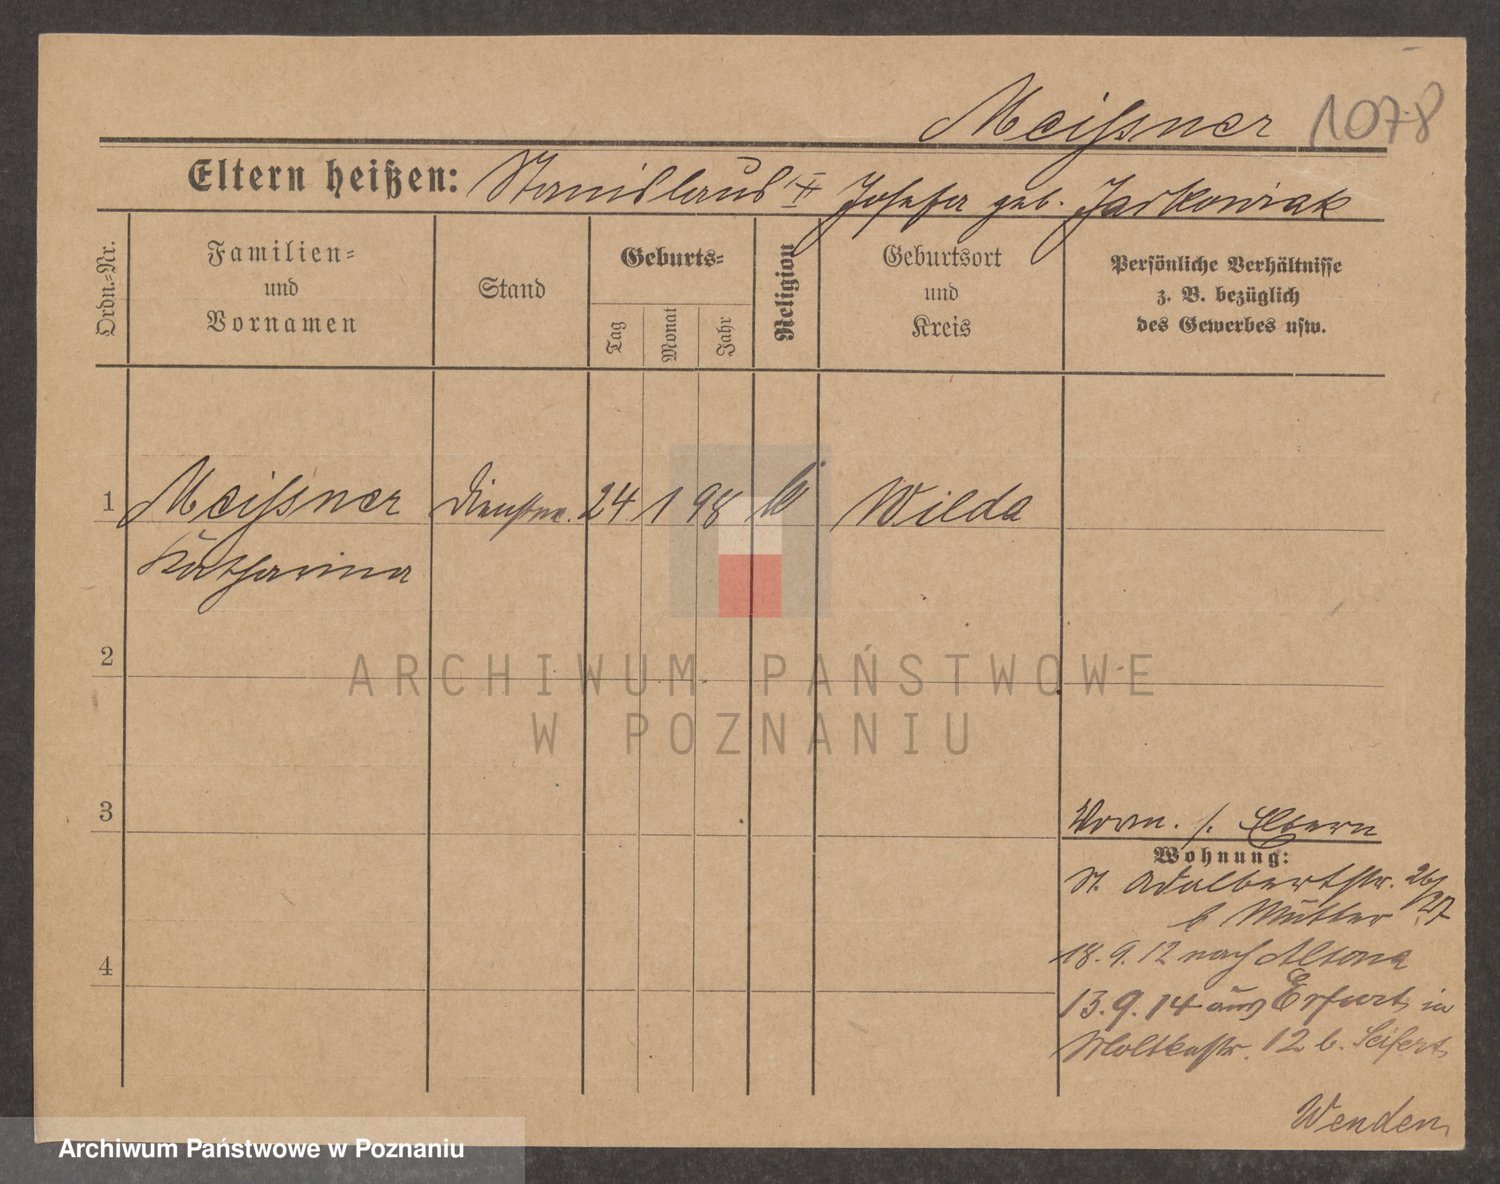 Meißner 1078
Eltern heißen: Stanislaus u. Josefa geb. Jaskowiak
Ordn.-Nr.
Familien-
und
Vornamen
Stand
Geburts-
Tag
Monat
Jahr
Religion
Geburtsort
und
Kreis
Persönliche Verhältnisse
z. B. bezüglich
des Gewerbes usw.
1 Meißner Dienstm. 24 1 98 k Wilda
Katharina
2
ARCHIWUM PAŃSTWOWE
W POZNANIU
3
Vorm. s. Eltern
Wohnung:
St. Adalbertstr. 26/27
b Mutter
4
18.9.12 nach Altona
13.9.14 aus Erfurt in
Moltkestr. 12 b. Seifert
Wenden
Archiwum Państwowe w Poznaniu